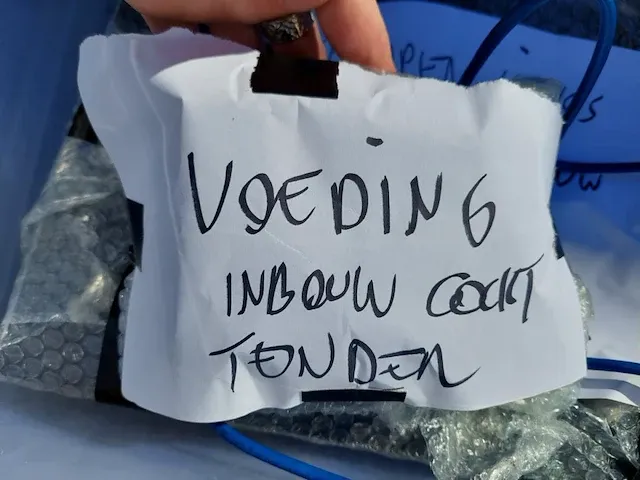 VOEDING
INBOUW COCKT
TENDER